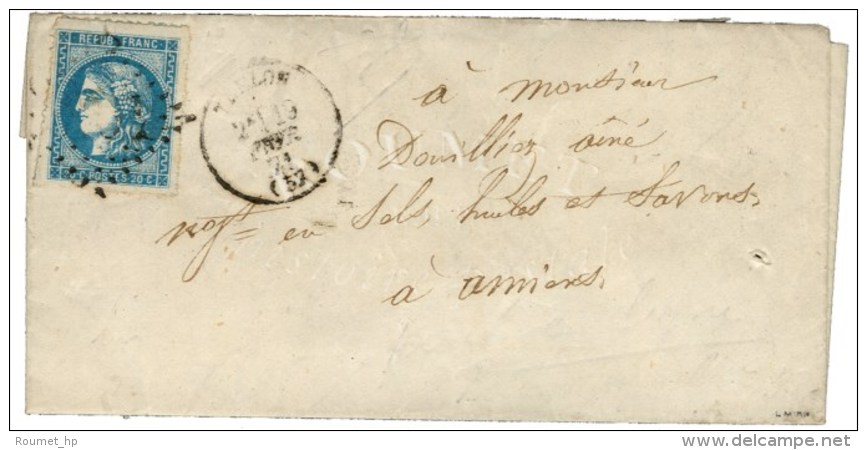 REPUB FRANC
POSTES 20 C
2E 19
FEVR
71
(37)
à monsieur
Douillier aîné
negt = en Sels, huiles et Savons,
à amiens,
Roumet_hp
delcampe.net